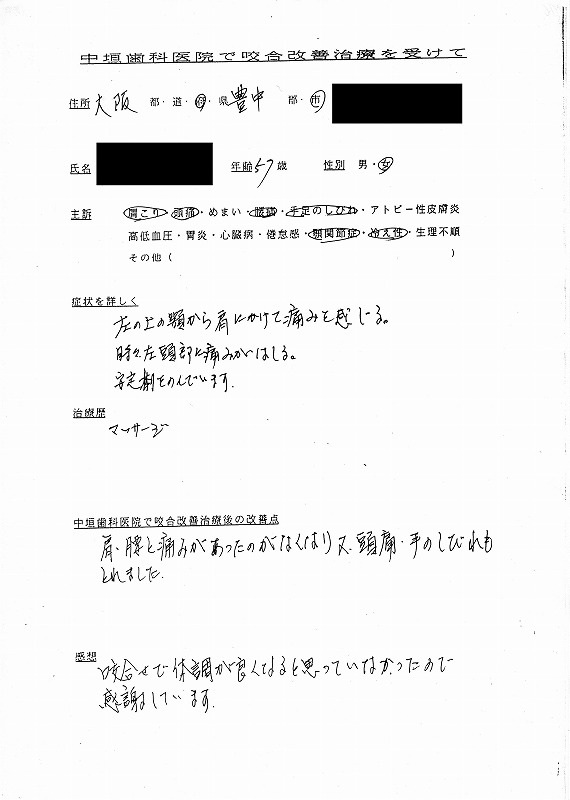 中垣歯科医院で咬合改善治療を受けて
住所 大阪 都・道・府・県 豊中 郡・市
氏名 年齢 57歳 性別 男・女
主訴 肩こり・頭痛・めまい・腰痛・手足のしびれ・アトピー性皮膚炎
高低血圧・胃炎・心臓病・倦怠感・顎関節症・冷え性・生理不順
その他( )
症状を詳しく
左の上の顎から肩にかけて痛みを感じる。
時々左頭部に痛みがはしる。
安定剤をのんでいます.
治療歴
マッサージ
中垣歯科医院で咬合改善治療後の改善点
肩、腰と痛みがあったのがなくなり又、頭痛・手のしびれも
とれました.
感想
咬合せで体調が良くなると思っていなかったので
感謝しています.